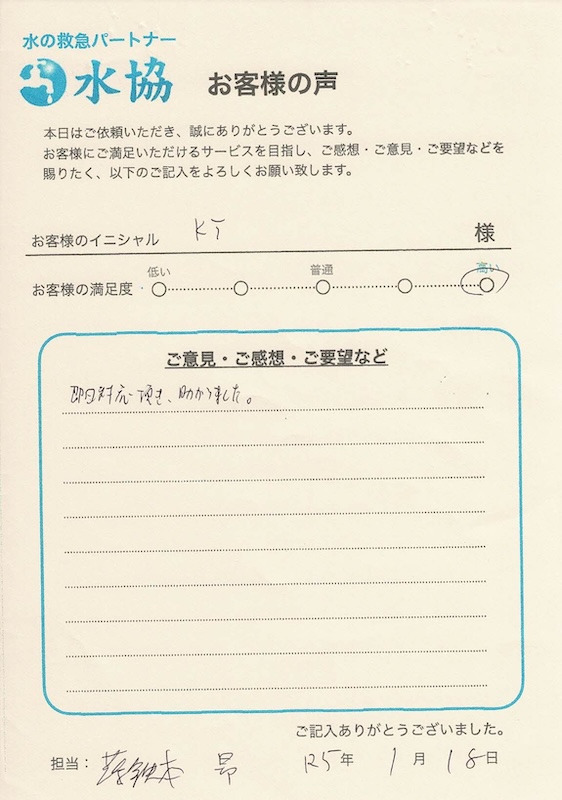 水の救急パートナー
水協 お客様の声
本日はご依頼いただき、誠にありがとうございます。
お客様にご満足いただけるサービスを目指し、ご感想・ご意見・ご要望などを
賜りたく、以下のご記入をよろしくお願い致します。
お客様のイニシャル KT 様
低い 普通 高い
お客様の満足度
ご意見・ご感想・ご要望など
即日対応頂き、助かりました。
ご記入ありがとうございました。
担当: 昂 R5年 1月 18日